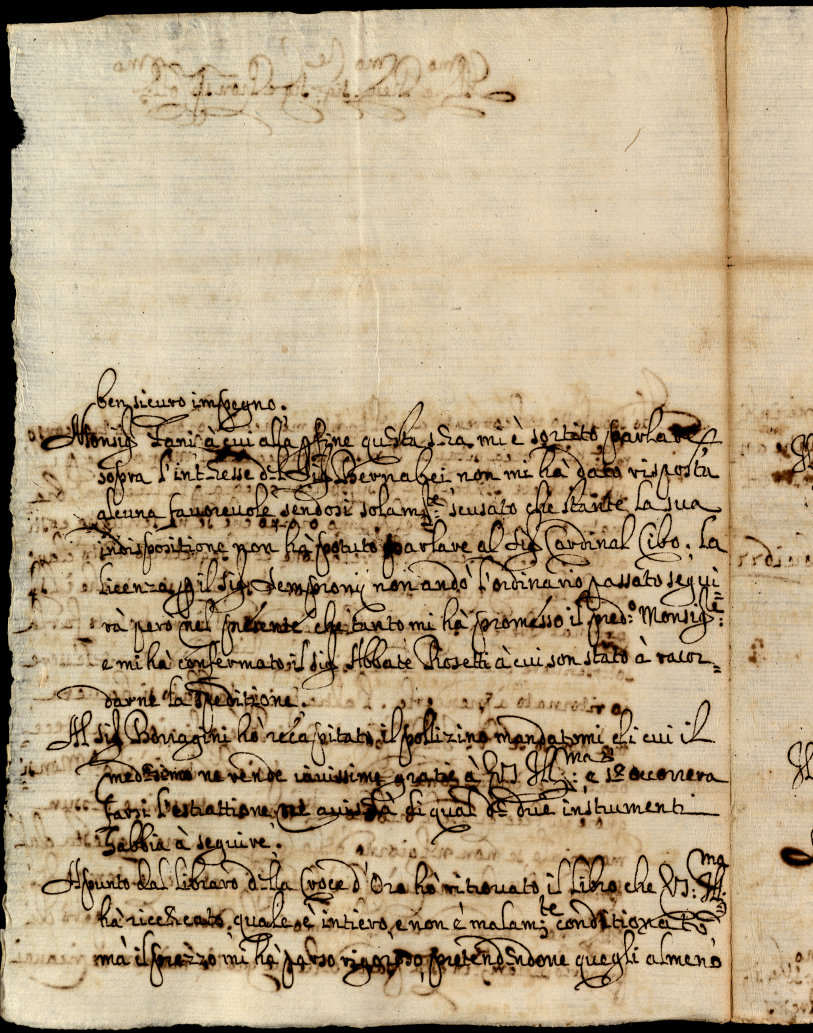 ben sicuro impegno.
Monsig.r Fani à cui alla fine questa sera mi è sortito parlare
sopra l'interesse del Sig.r Bernabei non mi hà dato risposta
alcuna favorevole sendosi solam.te scusato che stante la sua
indispositione non hà potuto parlare al Sig.r Cardinal Cibo. La
licenza p il Sig.r Sempronij non andò l'ordinario passato segui=
rà però nel presente che tanto mi hà promesso il pred.o Monsig.re:
e mi hà confermato il Sig.r Abbate Rosetti à cui son stato à racor=
darne la speditione.
Al Sig.r Borragini hò recapitato il pollizino mandatomi di cui il
medesimo ne rende vivissime gratie à V.S. Ill.ma: e se occorrerà
farsi l'estrattione ne aviserà di qual de due instrumenti
habbia à seguire.
Apunto dal libraro della Croce d'Oro hò ritrovato il libro che V.S: Ill.ma
hà ricercato, quale è intiero, e non è malam.te conditionato
mà il prezzo mi hà parso rigoroso pretendendone quegli almeno